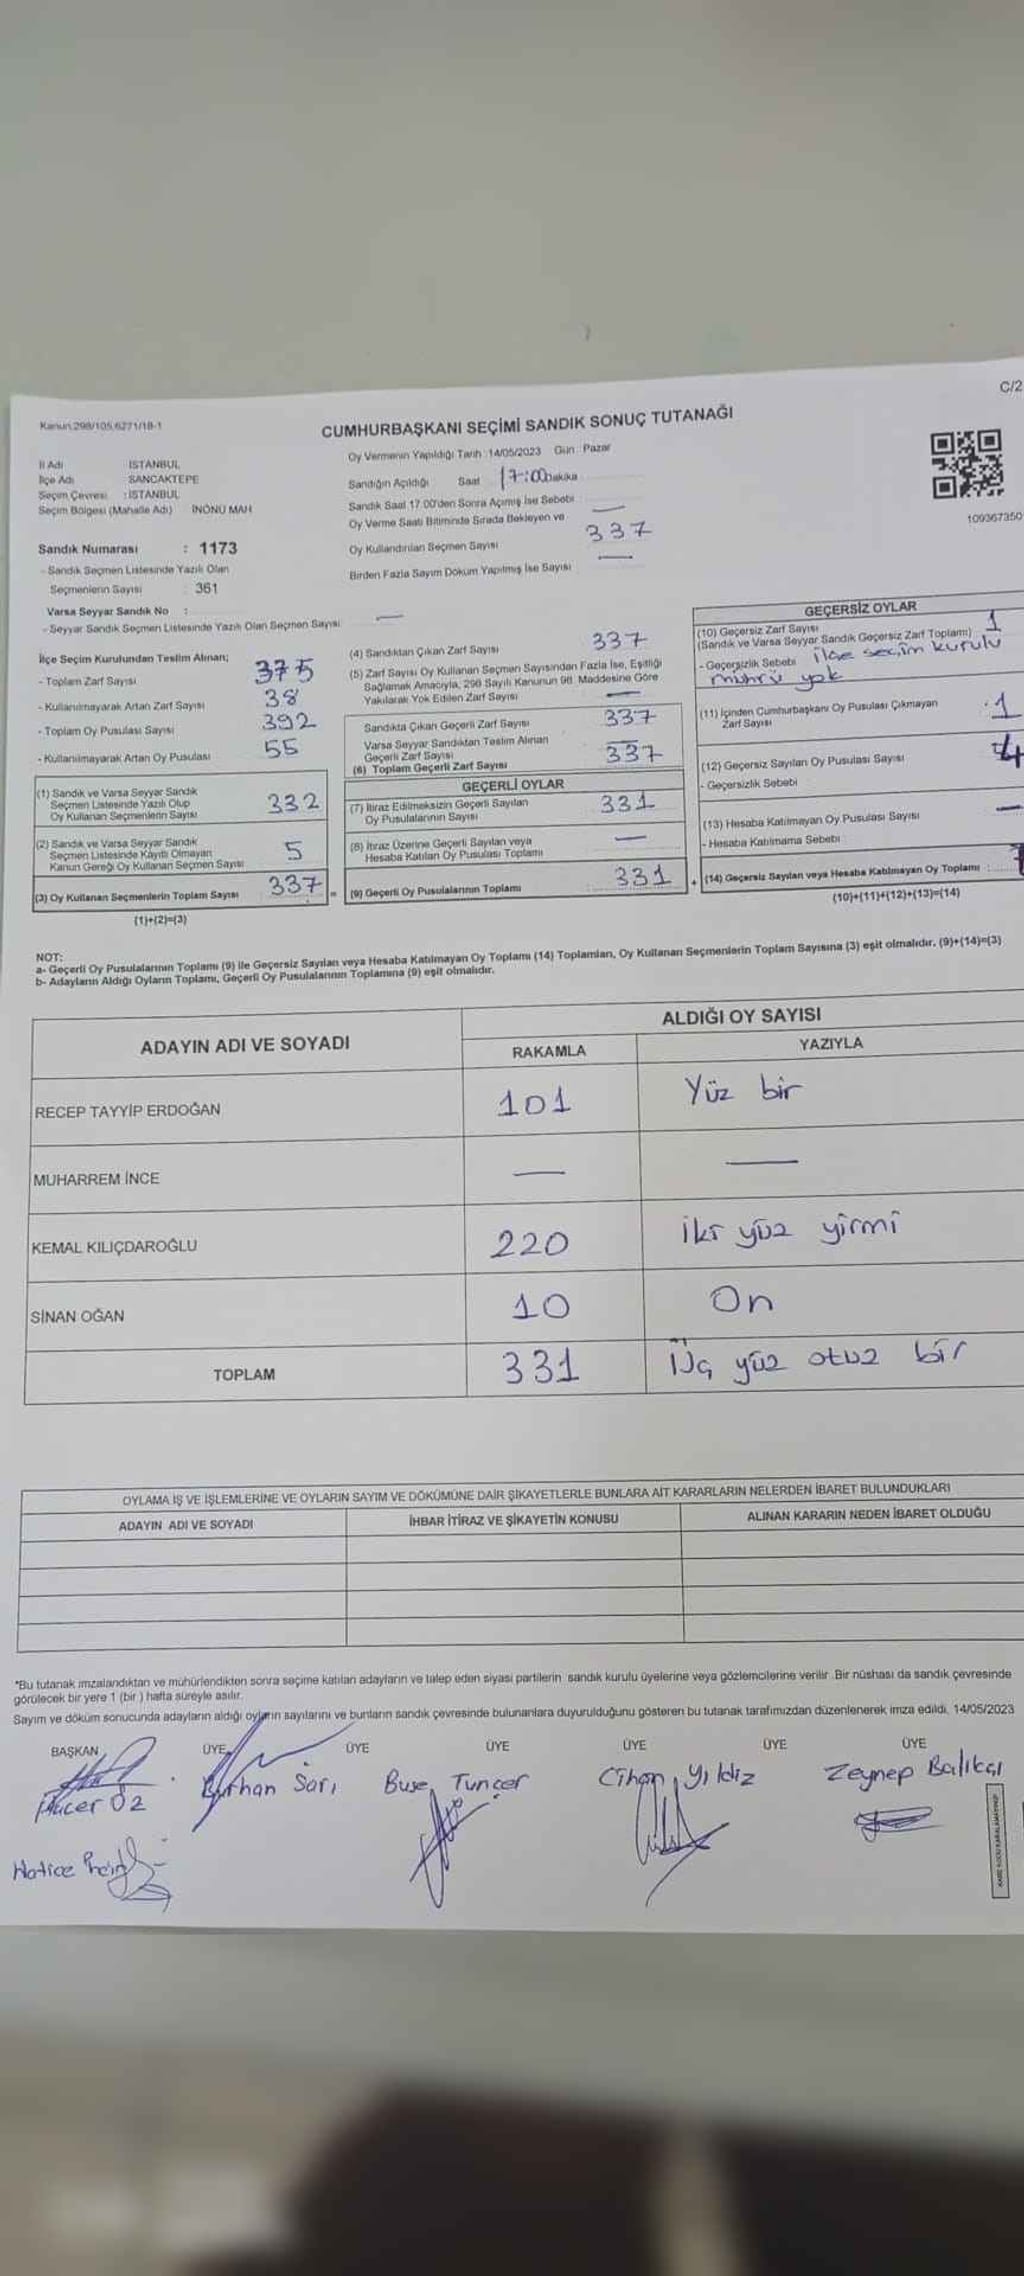 C/2
Kanun:298/105,6271/18-1
CUMHURBAŞKANI SEÇİMİ SANDIK SONUÇ TUTANAĞI
İl Adı : İSTANBUL
İlçe Adı : SANCAKTEPE
Seçim Çevresi : İSTANBUL
Seçim Bölgesi (Mahalle Adı) İNÖNÜ MAH
Sandık Numarası : 1173
- Sandık Seçmen Listesinde Yazılı Olan
Seçmenlerin Sayısı : 361
Varsa Seyyar Sandık No :
- Seyyar Sandık Seçmen Listesinde Yazılı Olan Seçmen Sayısı —
Oy Vermenin Yapıldığı Tarih :14/05/2023 Gün : Pazar
Sandığın Açıldığı Saat 17:00 Dakika
Sandık Saat 17.00'den Sonra Açımış İse Sebebi : —
Oy Verme Saati Bitiminde Sırada Bekleyen ve
Oy Kullandırılan Seçmen Sayısı 337
Birden Fazla Sayım Döküm Yapılmış İse Sayısı —
109367350
İlçe Seçim Kurulundan Teslim Alınan;
- Toplam Zarf Sayısı 375
- Kullanılmayarak Artan Zarf Sayısı 38
- Toplam Oy Pusulası Sayısı 392
- Kullanılmayarak Artan Oy Pusulası 55
(1) Sandık ve Varsa Seyyar Sandık
Seçmen Listesinde Yazılı Olup
Oy Kullanan Seçmenlerin Sayısı 332
(2) Sandık ve Varsa Seyyar Sandık
Seçmen Listesinde Kayıtlı Olmayan
Kanun Gereği Oy Kullanan Seçmen Sayısı 5
(3) Oy Kullanan Seçmenlerin Toplam Sayısı 337 =
(1)+(2)=(3)
(4) Sandıktan Çıkan Zarf Sayısı 337
(5) Zarf Sayısı Oy Kullanan Seçmen Sayısından Fazla İse, Eşitliği
Sağlamak Amacıyla, 298 Sayılı Kanunun 98. Maddesine Göre
Yakılarak Yok Edilen Zarf Sayısı —
Sandıkta Çıkan Geçerli Zarf Sayısı 337
Varsa Seyyar Sandıktan Teslim Alınan
Geçerli Zarf Sayısı —
(6) Toplam Geçerli Zarf Sayısı 337
GEÇERLİ OYLAR
(7) İtiraz Edilmeksizin Geçerli Sayılan
Oy Pusulalarının Sayısı 331
(8) İtiraz Üzerine Geçerli Sayılan veya
Hesaba Katılan Oy Pusulası Toplamı —
(9) Geçerli Oy Pusulalarının Toplamı 331 +
GEÇERSİZ OYLAR
(10) Geçersiz Zarf Sayısı
(Sandık ve Varsa Seyyar Sandık Geçersiz Zarf Toplamı) 1
- Geçersizlik Sebebi ilçe seçim kurulu
mührü yok
(11) İçinden Cumhurbaşkanı Oy Pusulası Çıkmayan
Zarf Sayısı 1
(12) Geçersiz Sayılan Oy Pusulası Sayısı 4
- Geçersizlik Sebebi
(13) Hesaba Katılmayan Oy Pusulası Sayısı —
- Hesaba Katılmama Sebebi :
(14) Geçersiz Sayılan veya Hesaba Katılmayan Oy Toplamı :
(10)+(11)+(12)+(13)=(14)
NOT:
a- Geçerli Oy Pusulalarının Toplamı (9) ile Geçersiz Sayılan veya Hesaba Katılmayan Oy Toplamı (14) Toplamları, Oy Kullanan Seçmenlerin Toplam Sayısına (3) eşit olmalıdır. (9)+(14)=(3)
b- Adayların Aldığı Oyların Toplamı, Geçerli Oy Pusulalarının Toplamına (9) eşit olmalıdır.
ADAYIN ADI VE SOYADI
ALDIĞI OY SAYISI
RAKAMLA YAZIYLA
RECEP TAYYİP ERDOĞAN 101 Yüz bir
MUHARREM İNCE — —
KEMAL KILIÇDAROĞLU 220 iki yüz yirmi
SİNAN OĞAN 10 On
TOPLAM 331 Üç yüz otuz bir
OYLAMA İŞ VE İŞLEMLERİNE VE OYLARIN SAYIM VE DÖKÜMÜNE DAİR ŞİKAYETLERLE BUNLARA AİT KARARLARIN NELERDEN İBARET BULUNDUKLARI
ADAYIN ADI VE SOYADI İHBAR İTİRAZ VE ŞİKAYETİN KONUSU ALINAN KARARIN NEDEN İBARET OLDUĞU
*Bu tutanak imzalandıktan ve mühürlendikten sonra seçime katılan adayların ve talep eden siyasi partilerin sandık kurulu üyelerine veya gözlemcilerine verilir .Bir nüshası da sandık çevresinde
görülecek bir yere 1 (bir ) hafta süreyle asılır.
Sayım ve döküm sonucunda adayların aldığı oyların sayılarını ve bunların sandık çevresinde bulunanlara duyurulduğunu gösteren bu tutanak tarafımızdan düzenlenerek imza edildi. 14/05/2023
BAŞKAN ÜYE ÜYE ÜYE ÜYE ÜYE ÜYE
Burhan Sarı Buse Tunçer Cihan Yıldız Zeynep Balıkçı
Hatice